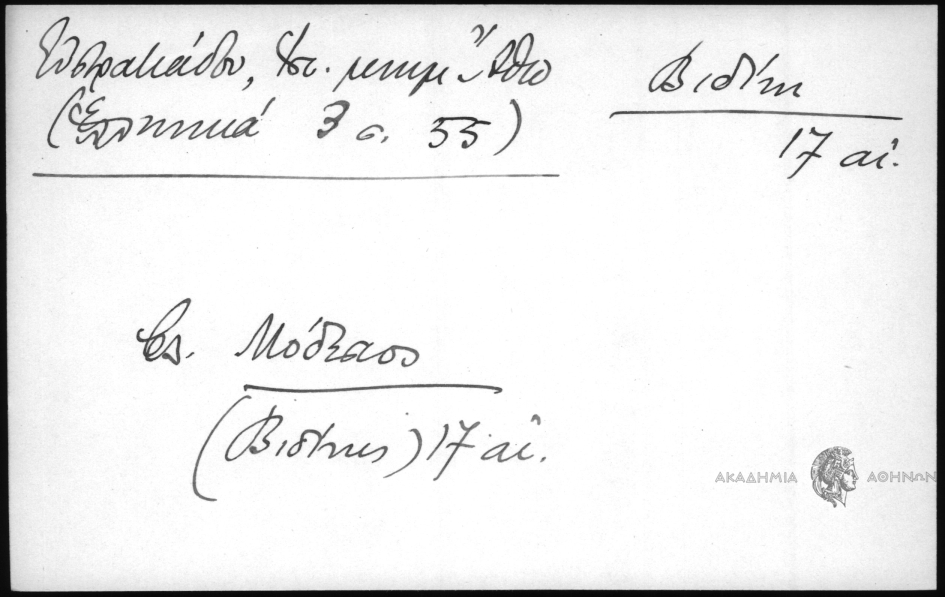 Εὐστρατιάδου, Ἱστ. μνημ. Ἄθω
(Ἑλληνικά 3 σ. 55)
Βιδύνη
17 αἰ.
βλ. Μόδεστος
(Βιδύνης) 17 αἰ.
ΑΚΑΔΗΜΙΑ ΑΘΗΝΩΝ